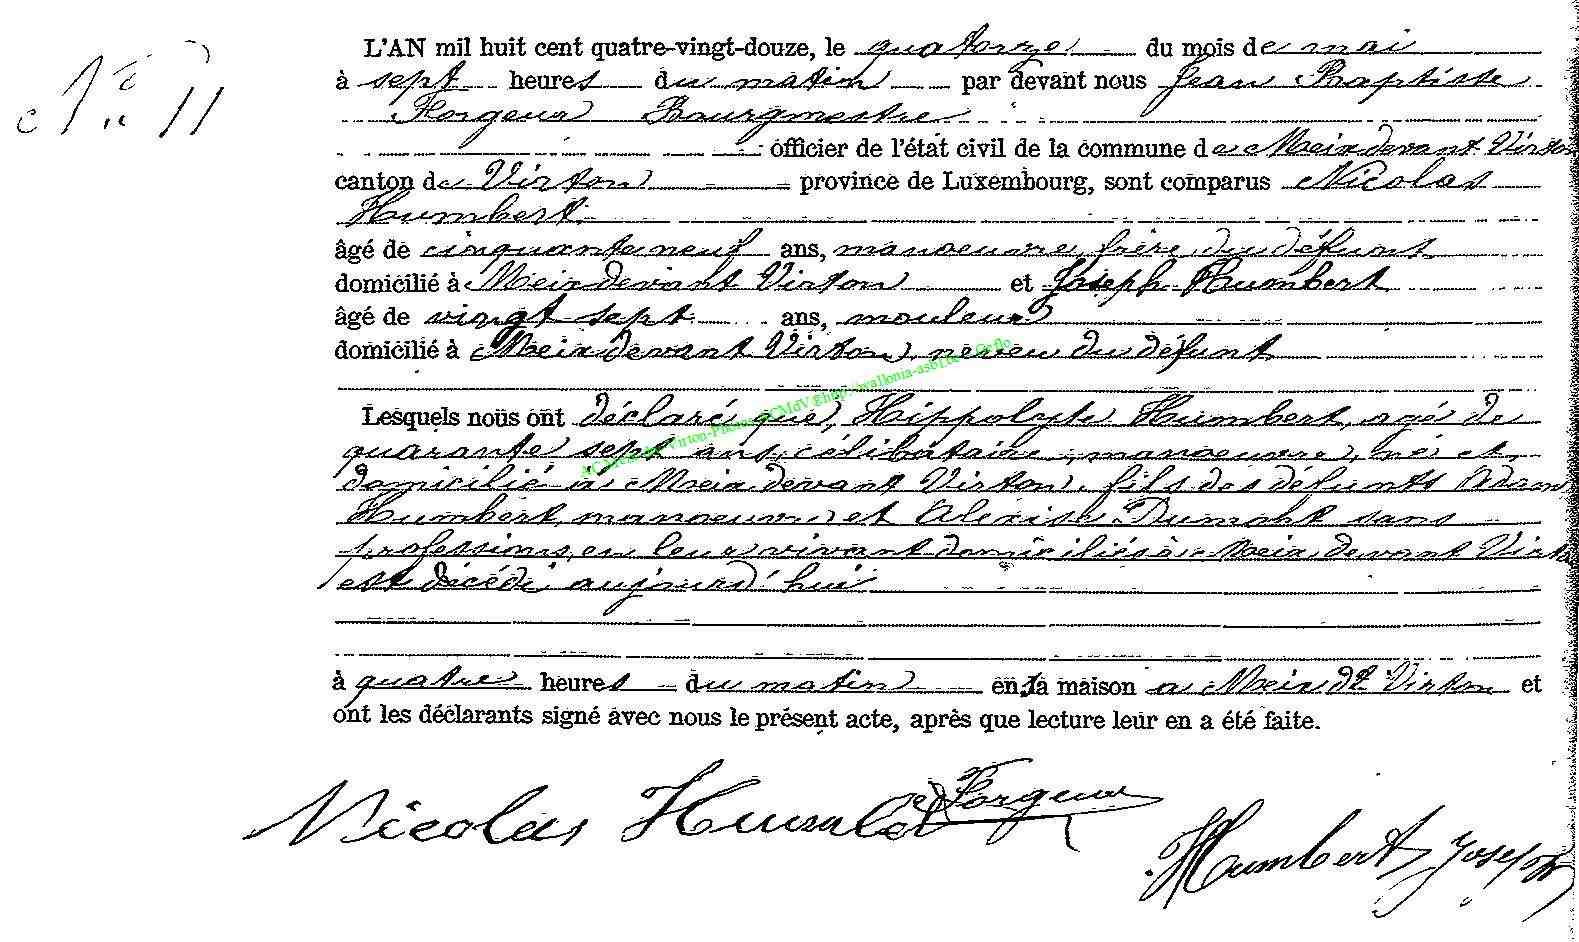 N° 11
L'AN mil huit cent quatre-vingt-douze, le quatorze du mois de mai
à sept heures du matin par devant nous Jean Baptiste
Forgeur Bourgmestre
officier de l'état civil de la commune de Meix devant Virton
canton de Virton province de Luxembourg, sont comparus Nicolas
Humbert
âgé de cinquante neuf ans, manoeuvre, frère du défunt
domicilié à Meix devant Virton et Joseph Humbert
âgé de vingt sept ans, mouleur
domicilié à Meix devant Virton, neveu du défunt
Lesquels nous ont déclaré que, Hippolyte Humbert, agé de
quarante sept ans, célibataire, manoeuvre, né et
domicilié à Meix devant Virton, fils des défunts Adam
Humbert, manoeuvre et Alexise Dumont sans
profession, en leur vivant domiciliés à Meix devant Virton
est décédé aujourd'hui
à quatre heures du matin en la maison a Meix dt Virton et
ont les déclarants signé avec nous le présent acte, après que lecture leur en a été faite.
Nicolas Humbert Forgeur
Humbert Joseph